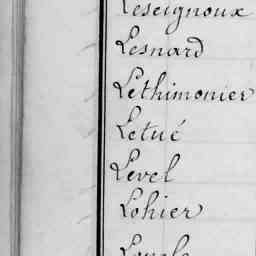 Leseignoux
Lesnard
Lethimonier
Letué
Level
Lohier